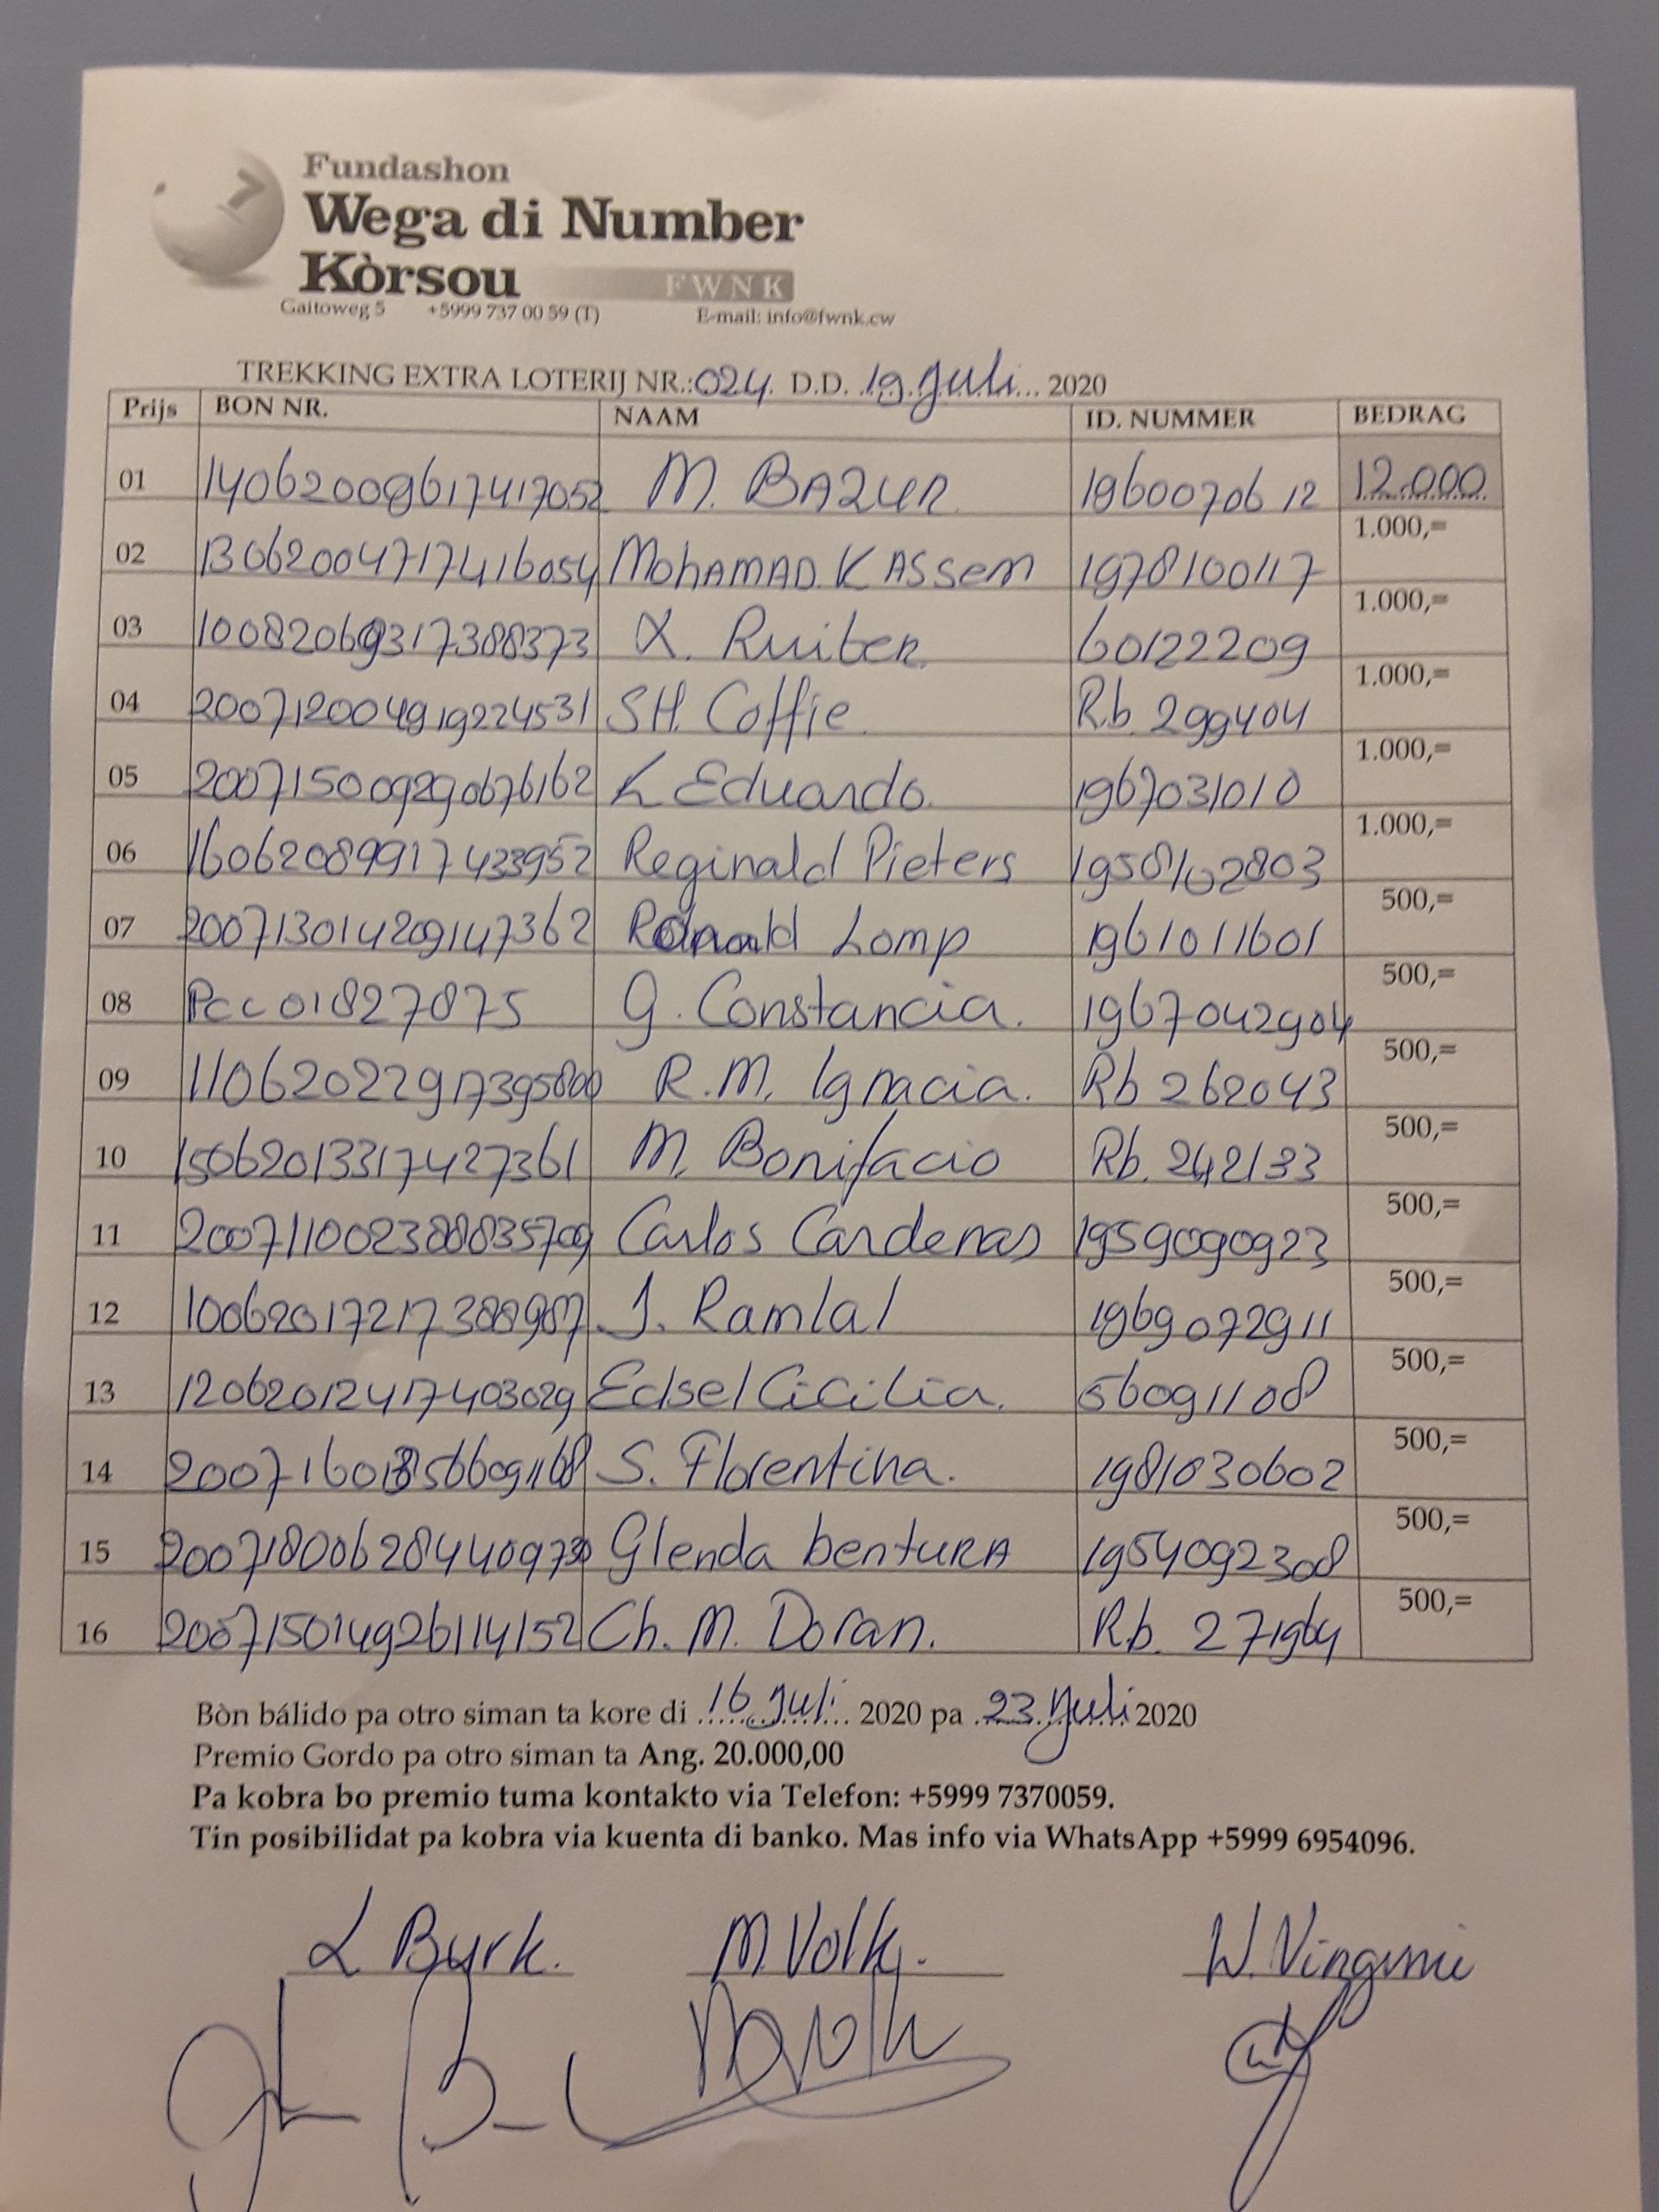 Fundashon
Wega di Number
Kòrsou FWNK
Gaitoweg 5 +5999 737 00 59 (T) E-mail: info@fwnk.cw
TREKKING EXTRA LOTERIJ NR.: 024. D.D. 19 juli 2020
Prijs BON NR. NAAM ID. NUMMER BEDRAG
01 14062009617417052 M. 1960070612 12.000
02 13062004717416054 MohAMAD KASSem 1978100117 1.000,=
03 10082069317388373 Ruiter 60122209 1.000,=
04 200712004919224531 SH. Coffie Rb 299404 1.000,=
05 200715009290676162 Eduardo 1967031010 1.000,=
06 16062089917433952 Reginald Pieters 1958102803 1.000,=
07 200713014209147362 Lomp 1961011601 500,=
08 Pcc01827875 G. Constancia. 1967042904 500,=
09 R.M. Ignacia. Rb 262043 500,=
10 15062013317427361 M. Bonifacio Rb. 242133 500,=
11 200711002388835709 Carlos Cardenas 1959090923 500,=
12 J. Ramlal 1969072911 500,=
13 12062012417403029 Edsel Cicilia. 56091108 500,=
14 S. Florentina. 1981030602 500,=
15 Glenda bentuRA 1954092308 500,=
16 200715014926114152 Ch. M. Doran. Rb. 271964 500,=
Bòn bálido pa otro siman ta kore di 16 juli 2020 pa 23 juli 2020
Premio Gordo pa otro siman ta Ang. 20.000,00
Pa kobra bo premio tuma kontakto via Telefon: +5999 7370059.
Tin posibilidat pa kobra via kuenta di banko. Mas info via WhatsApp +5999 6954096.
L Burk. M. W.